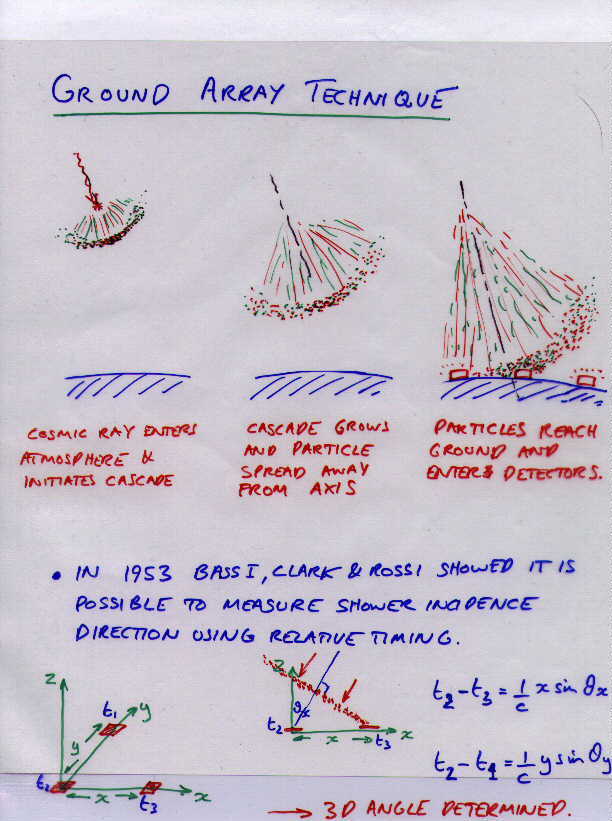 GROUND ARRAY TECHNIQUE
COSMIC RAY ENTERS
ATMOSPHERE &
INITIATES CASCADE
CASCADE GROWS
AND PARTICLE
SPREAD AWAY
FROM AXIS
PARTICLES REACH
GROUND AND
ENTERS DETECTORS.
• IN 1953 BASSI, CLARK & ROSSI SHOWED IT IS
POSSIBLE TO MEASURE SHOWER INCIDENCE
DIRECTION USING RELATIVE TIMING.
z
t₁
y
y
t₂
x
t₃
x
z
θx
t₂
x
t₃
x
t₂-t₃ = 1/c x sin θx
t₂-t₁ = 1/c y sin θy
→ 3D ANGLE DETERMINED.